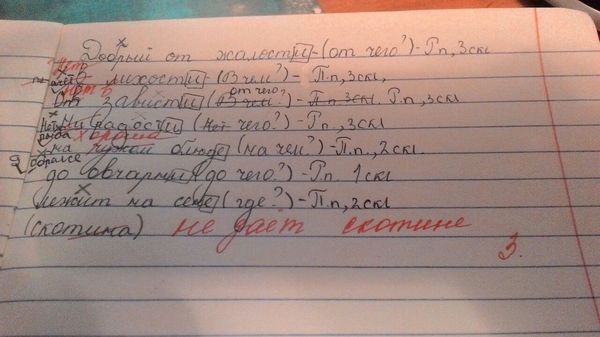 Добрый от жалости-(от чего?)-Р.п, 3скл
лихости-(В чем?)-П.п, 3скл,
От зависти-(В чем? от чего?)-П.п 3скл. Р.п, 3скл
Ни радости (Нет чего?)-Р.п, 3скл
хороша
рыба на чужом блюде (на чем?)-П.п., 2скл.
добрался до овчарни (до чего?)-Р.п. 1скл
лежит на сене (где?)-П.п, 2скл
(скотина) не дает скотине
3.